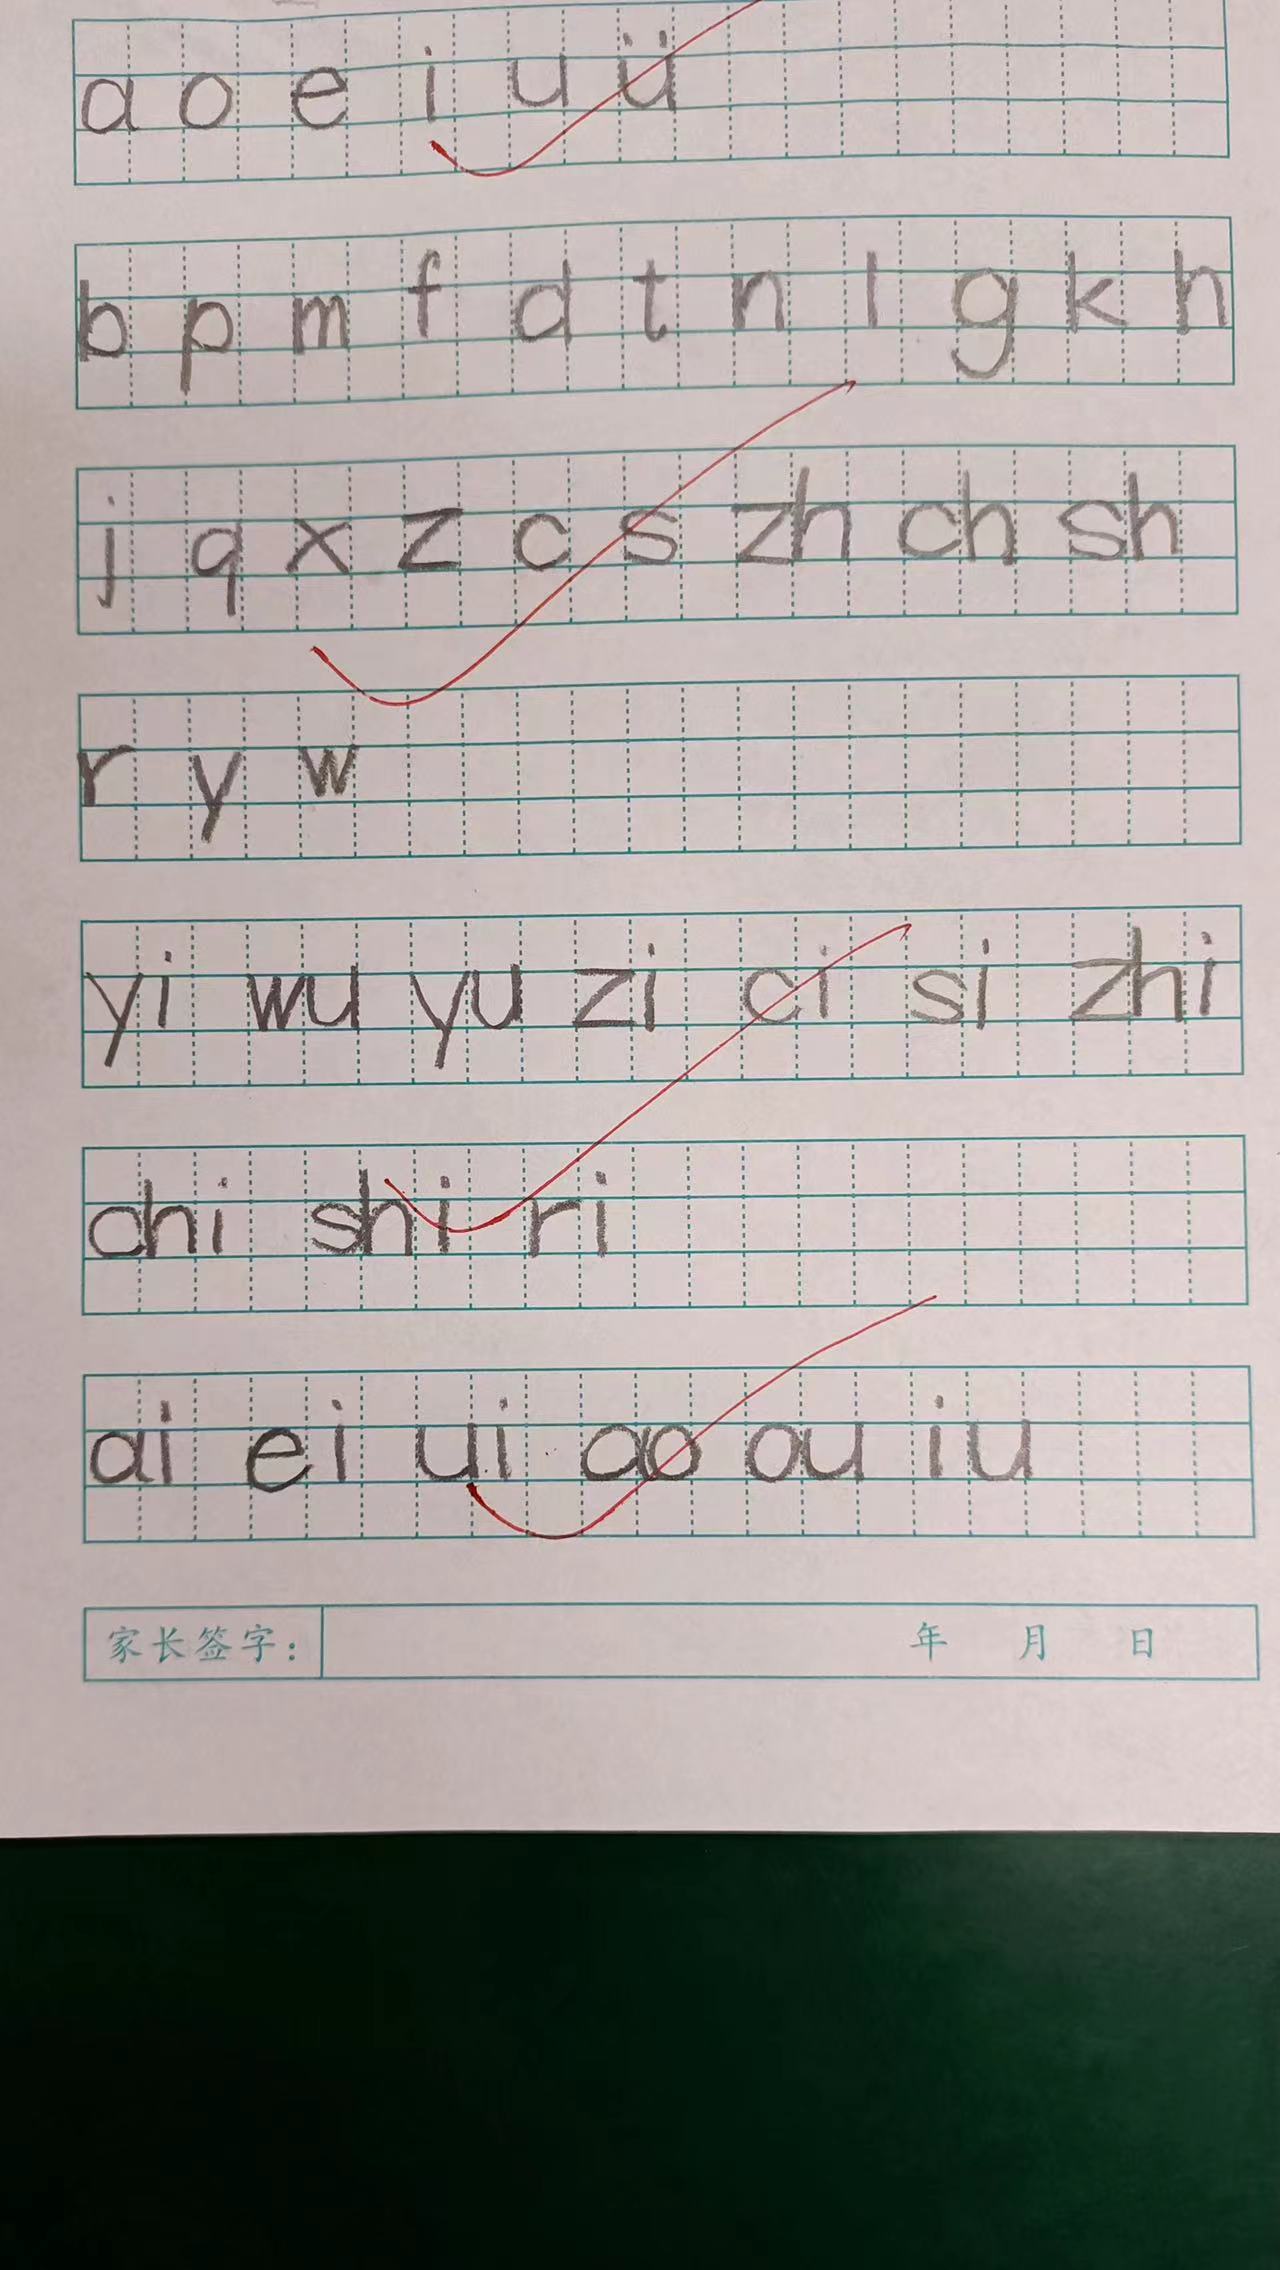 a o e i u ü
b p m f d t n l g k h
j q x z c s zh ch sh
r y w
yi wu yu zi ci si zhi
chi shi ri
ai ei ui ao ou iu
家长签字： 年 月 日